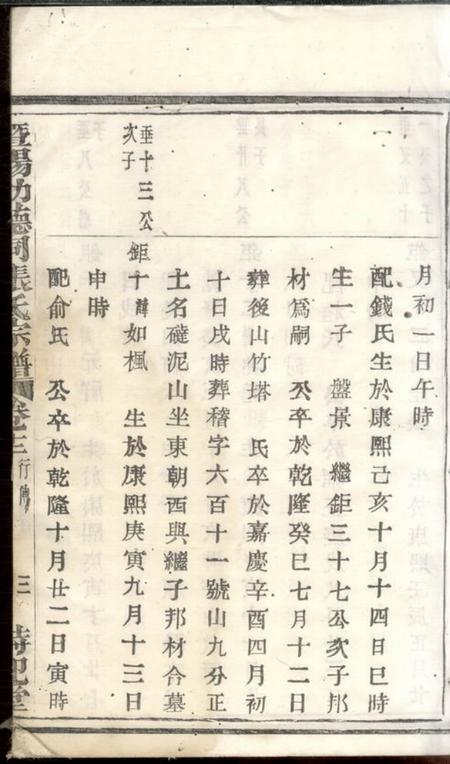 月初一日午時
配錢氏生於康熙己亥十月十四日巳時
生一子 盤景 繼鉅三十七公次子邦
材爲嗣 公卒於乾隆癸巳七月十二日
葬後山竹塔 氏卒於嘉慶辛酉四月初
十日戌時葬稽字六百十一號山九分正
土名礶泥山坐東朝西與繼子邦材合墓
垂十三公
次子
鉅十 諱如楓 生於康熙庚寅九月十三日
申時
配俞氏 公卒於乾隆十月廿二日寅時
暨陽功德祠張氏宗譜 卷三 行傳 三